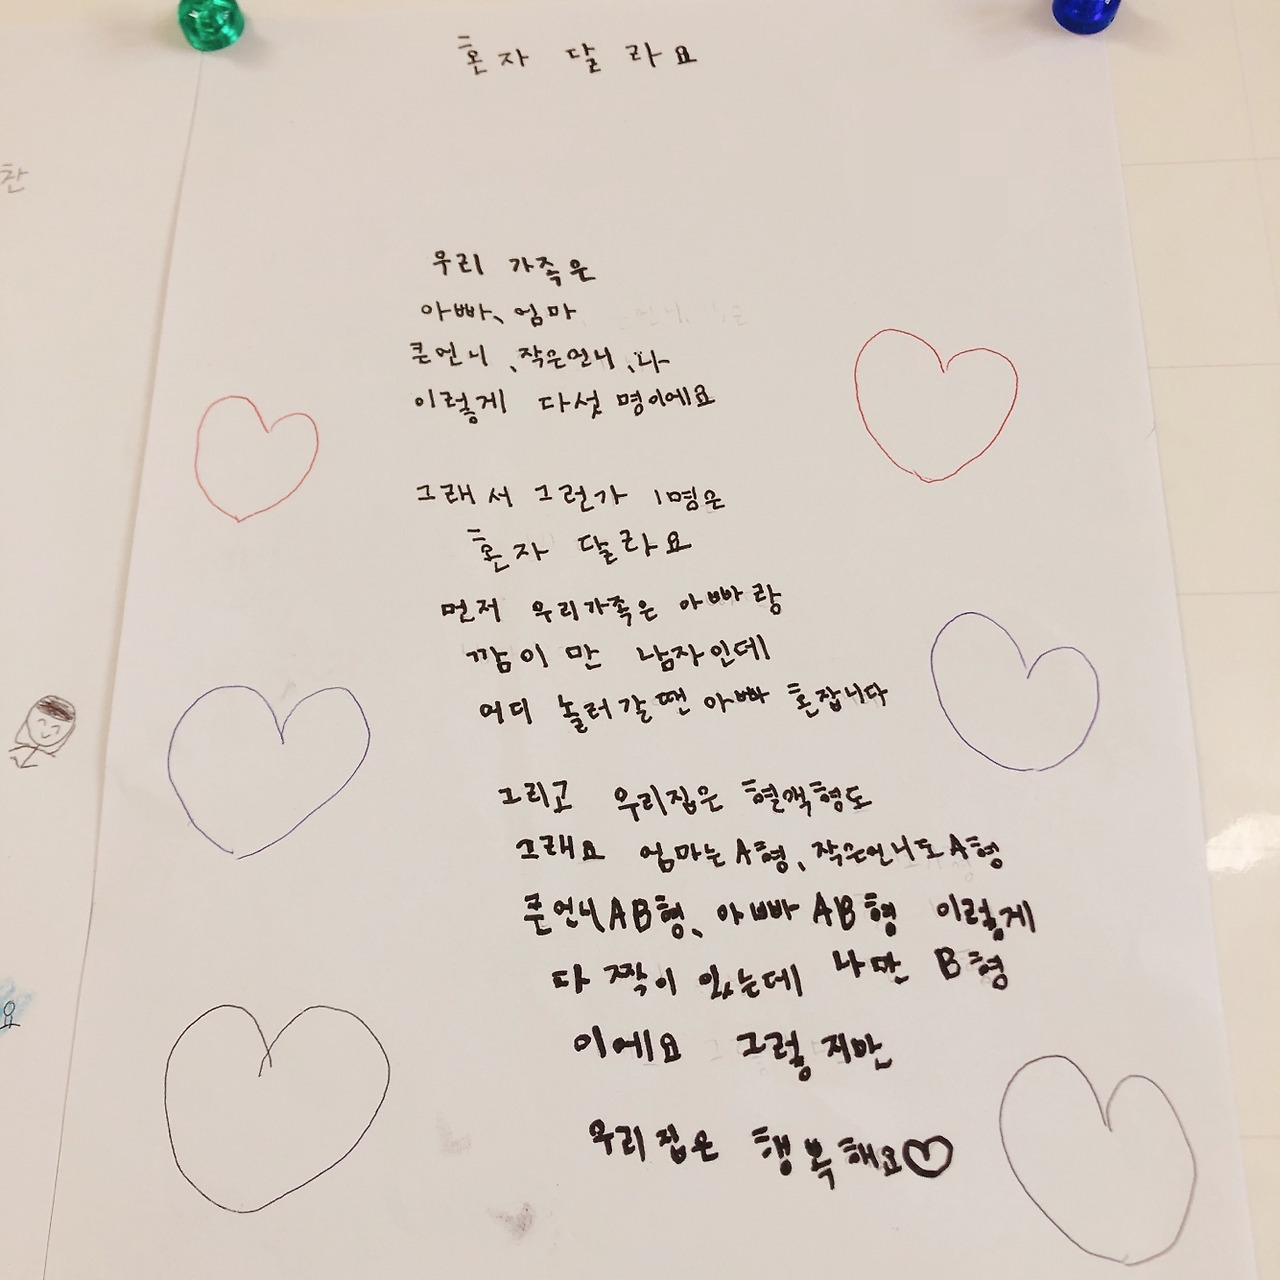 혼자 달라요
우리 가족은
아빠、엄마
큰언니、작은언니、나
이렇게 다섯 명이에요
그래서 그런가 1명은
혼자 달라요
먼저 우리가족은 아빠랑
깜이만 남자인데
어디 놀러갈땐 아빠 혼잡니다
그리고 우리집은 혈액형도
그래요 엄마는 A형、작은언니도 A형
큰언니 AB형、아빠 AB형 이렇게
다 짝이 있는데 나만 B형
이에요 그렇지만
우리집은 행복해요♡
찬
요